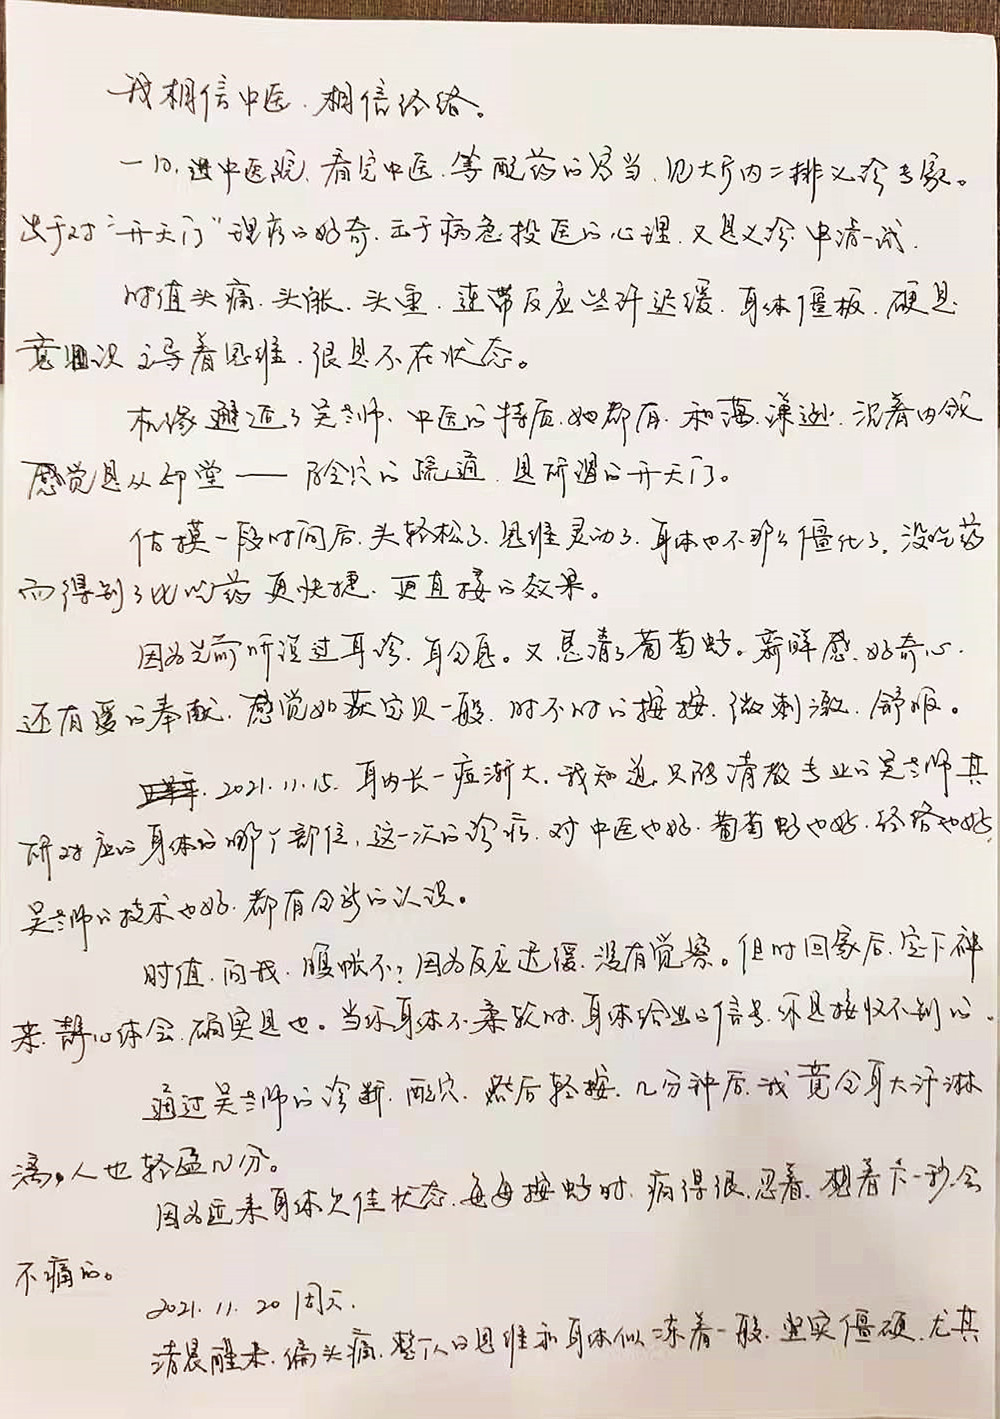 我相信中医.相信经络。
一日,进中医院,看完中医.等配药的写当,见大厅内二排义诊专家。
出于对“开天门”理疗的好奇.至于病急投医的心理.又是义诊.申请一试.
时值头痛.头胀.头重.连带反应些许迟缓.身体僵板.硬是
意识主导着思维.很是不在状态。
机缘邂逅了吴老师.中医的特质.她都有.和蔼.谦逊.沉着内敛
感觉是从印堂——除会穴的疏通.是所谓的开天门。
估摸一段时间后.头轻松了.思维灵动了.身体也不那么僵化了.没吃药
而得到了比吃药更快捷.更直接的效果。
因为之前听说过耳诊.耳分区。又恳请了葡萄籽。新鲜感.好奇心.
还有爱的奉献.感觉如获宝贝一般.时不时的按按.微刺激.舒服。
2021.11.15.耳内长一痘渐大.我知道.只能请教专业的吴老师其
所对应的身体的哪个部位,这一次的诊疗.对中医也好.葡萄籽也好.经络也好,
吴老师的技术也好.都有全新的认识。
时值.问我.腹胀不?因为反应迟缓.没有觉察。但时回家后.定下神
来.静心体会.确实是也。当你身体不柔软时.身体给出的信号.你是接收不到的.
通过吴老师的诊断.配穴.然后轻按.几分钟后.我竟全身大汗淋
漓,人也轻盈几分。
因为近来身体欠佳状态.每每按籽时.痛得很.忍着.想着下一秒会
不痛的。
2021.11.20 周六.
清晨醒来.偏头痛.整个人的思维和身体似冻着一般.坚实僵硬.尤其